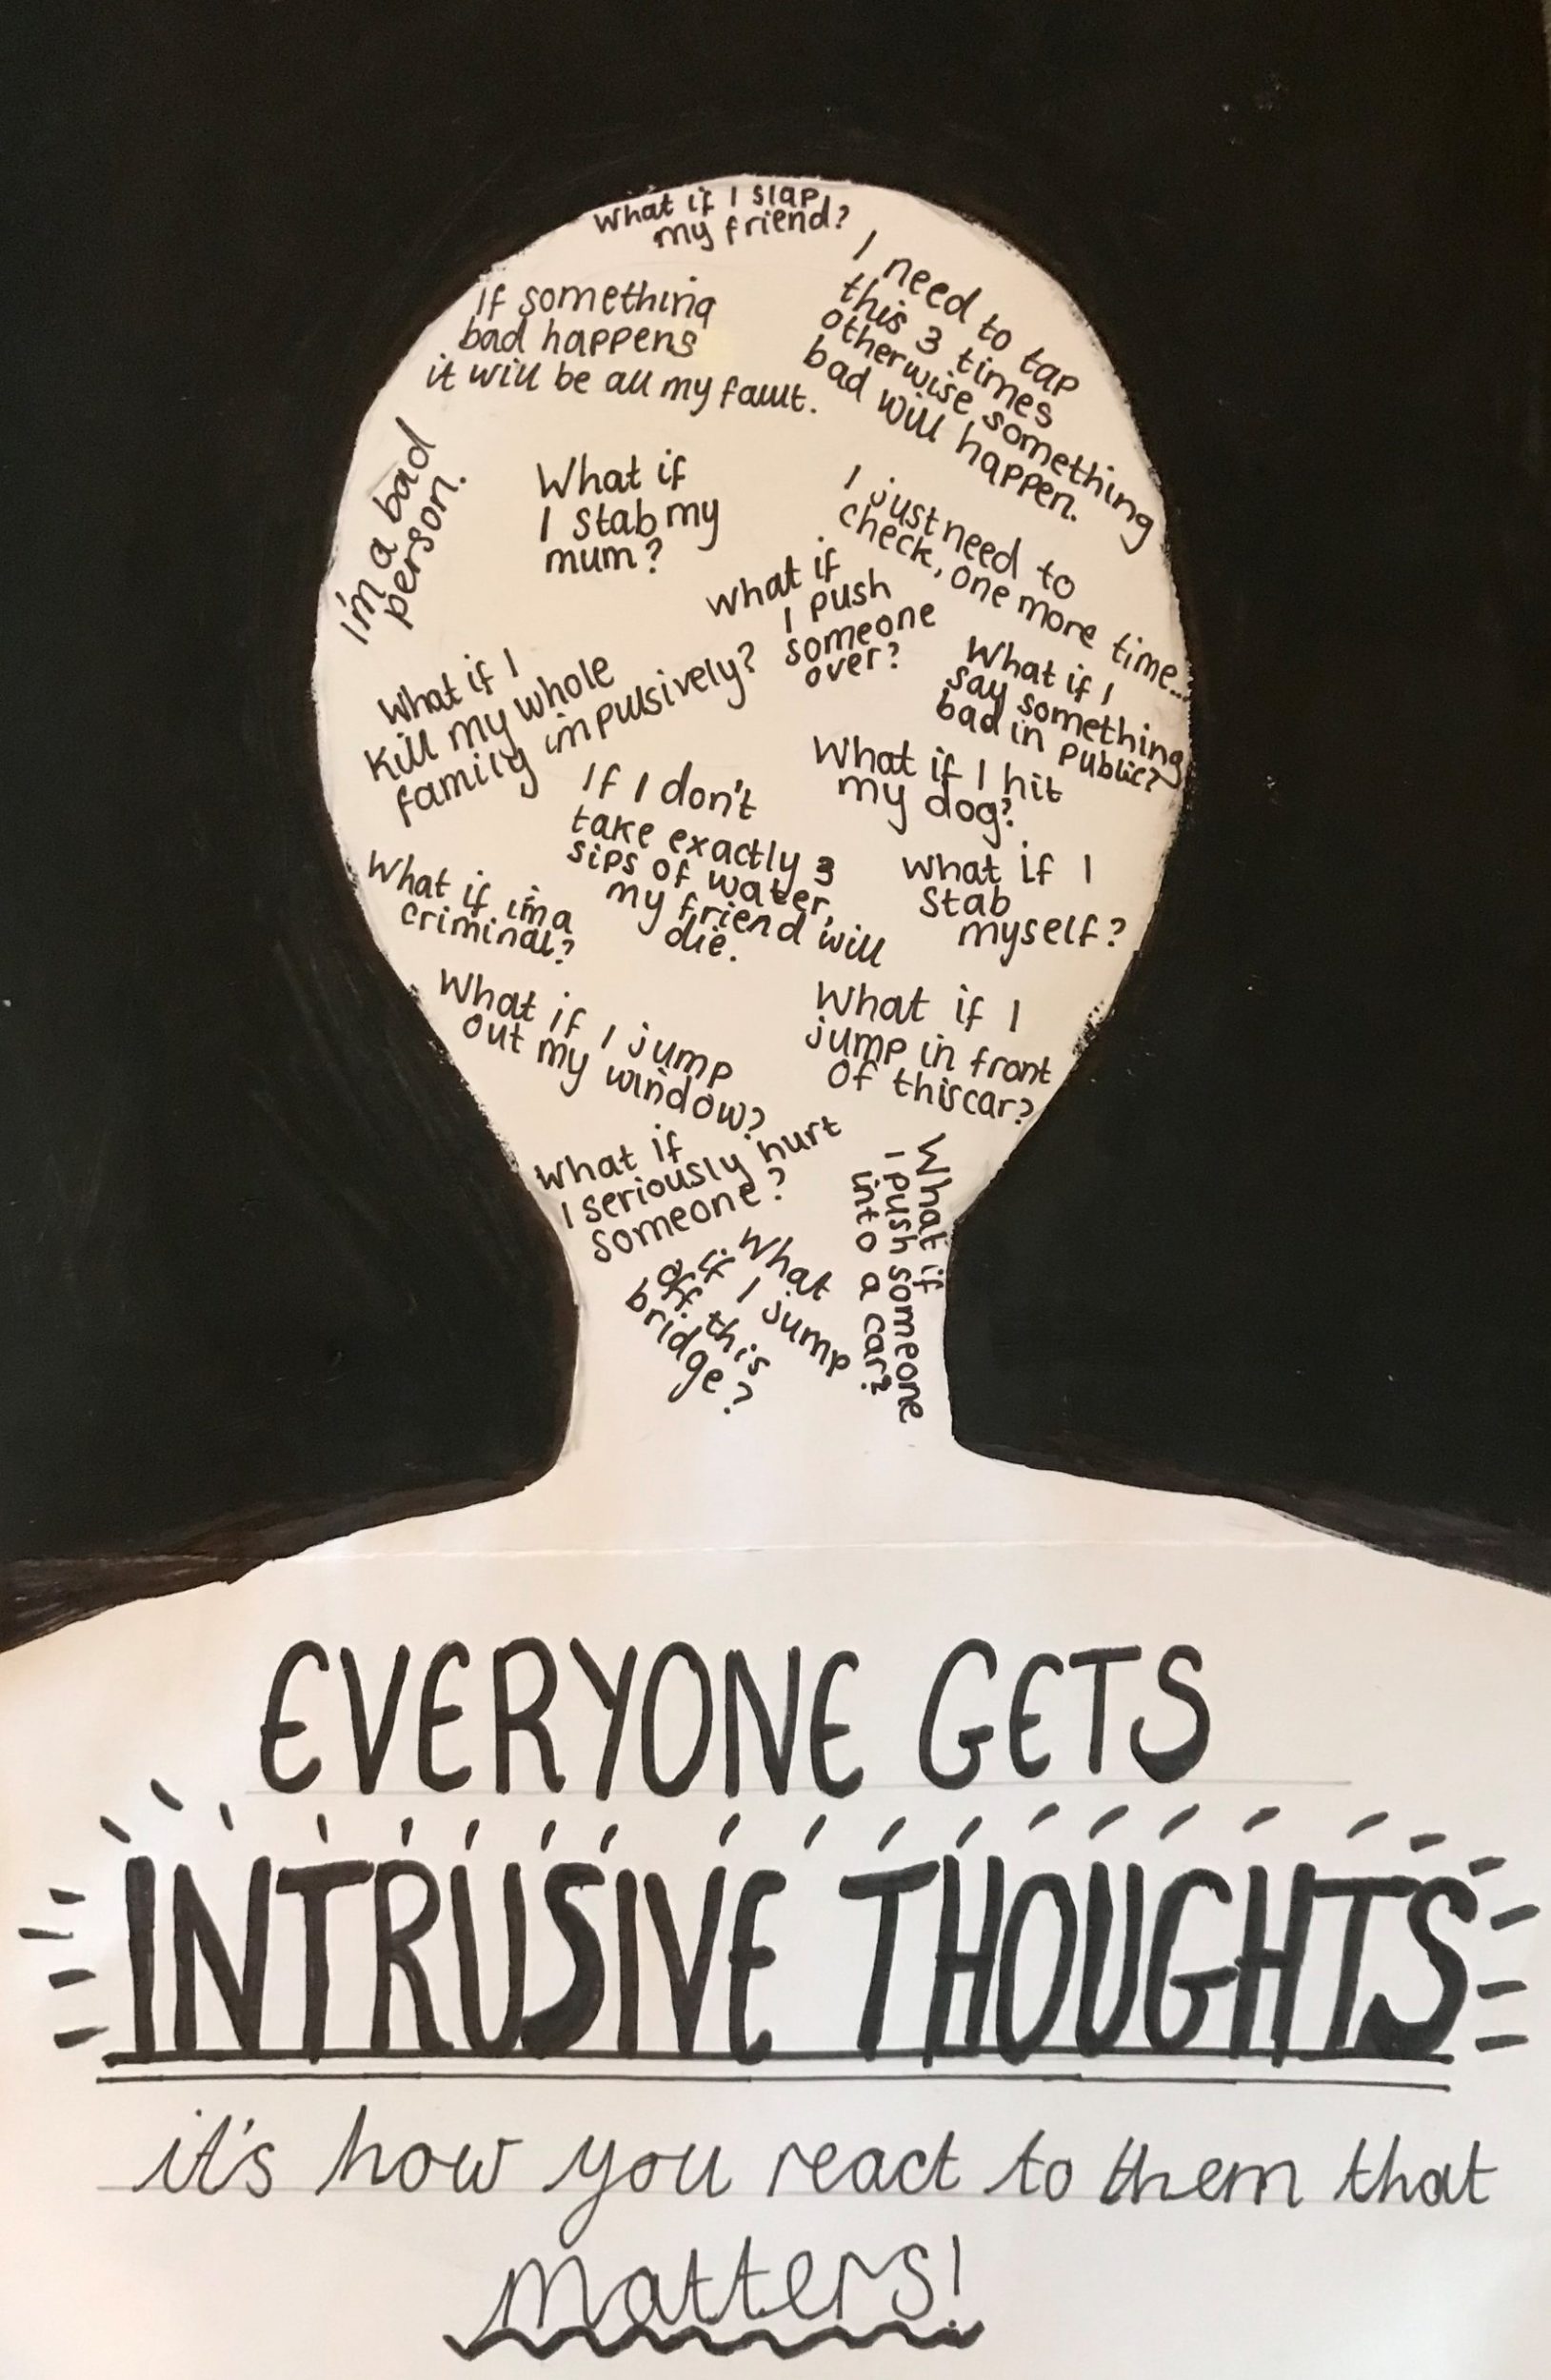 What if I slap
my friend?
I need to tap
this 3 times
otherwise something
bad will happen.
If something
bad happens
it will be all my fault.
I'm a bad
person.
What if
I stab my
mum?
I just need to
check, one more time...
What if
I push
someone
over?
What if I
say something
bad in public?
What if I
kill my whole
family impulsively?
What if I hit
my dog?
If I don't
take exactly 3
sips of water,
my friend will
die.
What if I
stab
myself?
What if im a
criminal?
What if I jump
out my window?
What if I
jump in front
of this car?
What if
I seriously hurt
someone?
What if
I push someone
into a car?
What
if I jump
off this
bridge?
EVERYONE GETS
INTRUSIVE THOUGHTS
it's how you react to them that
matters!